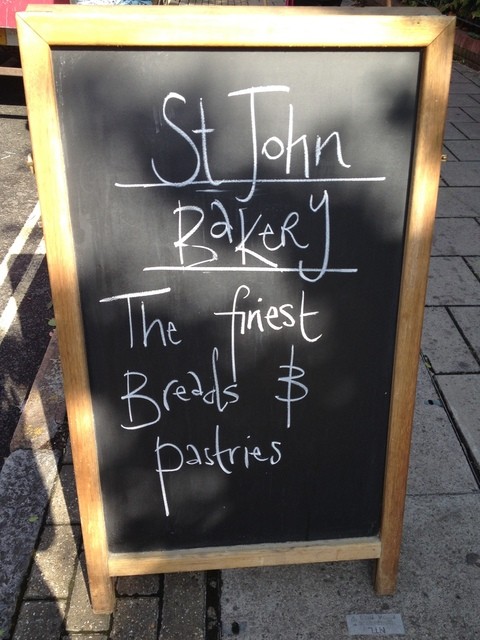 St John
BaKery
The finest
Breads &
pastries